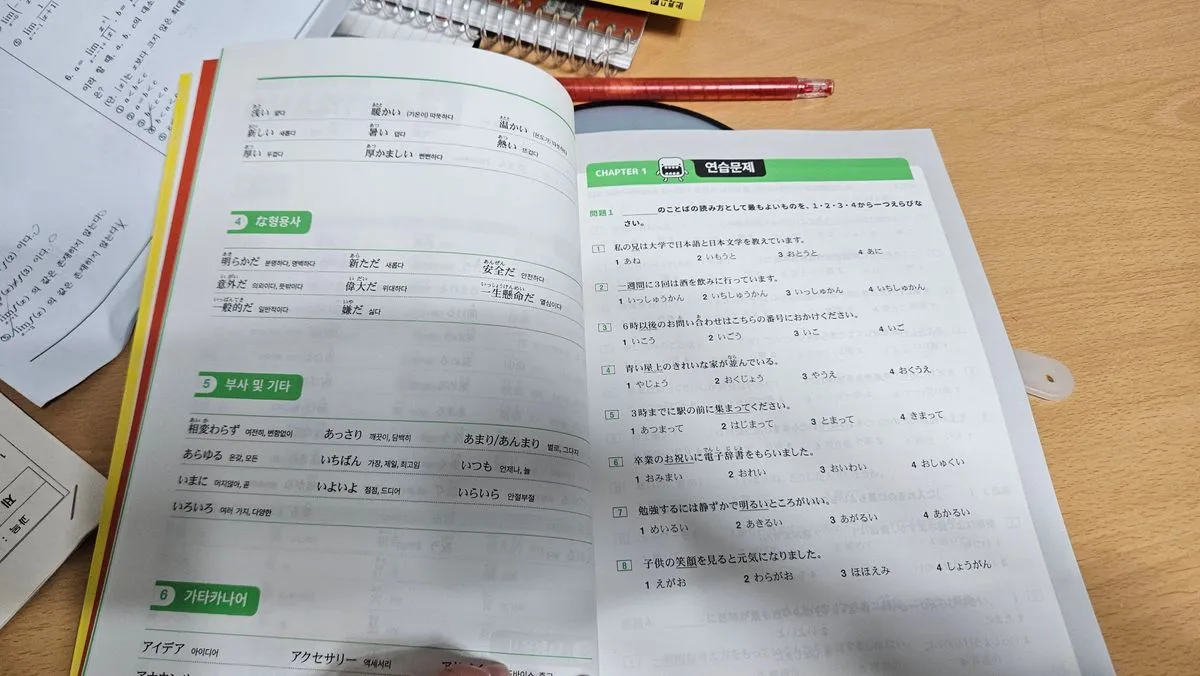 浅い 얕다 暖かい (기온이) 따뜻하다 温かい (온도가) 따뜻하다
新しい 새롭다 暑い 덥다 熱い 뜨겁다
厚い 두껍다 厚かましい 뻔뻔하다
4 な형용사
明らかだ 분명하다, 명백하다 新ただ 새롭다 安全だ 안전하다
意外だ 의외이다, 뜻밖이다 偉大だ 위대하다 一生懸命だ 열심이다
一般的だ 일반적이다 嫌だ 싫다
5 부사 및 기타
相変わらず 여전히, 변함없이 あっさり 깨끗이, 담백히 あまり/あんまり 별로, 그다지
あらゆる 온갖, 모든 いちばん 가장, 제일, 최고임 いつも 언제나, 늘
いまに 머지않아, 곧 いよいよ 점점, 드디어 いらいら 안절부절
いろいろ 여러 가지, 다양한
6 가타카나어
アイデア 아이디어 アクセサリー 액세서리
CHAPTER 1 연습문제
問題1 ______のことばの読み方として最もよいものを、1・2・3・4から一つえらびな
さい。
1 私の兄は大学で日本語と日本文学を教えています。
1 あね 2 いもうと 3 おとうと 4 あに
2 一週間に3回は酒を飲みに行っています。
1 いっしゅうかん 2 いちしゅうかん 3 いっしゅかん 4 いちしゅかん
3 6時以後のお問い合わせはこちらの番号におかけください。
1 いこう 2 いごう 3 いこ 4 いご
4 青い屋上のきれいな家が並んでいる。
1 やじょう 2 おくじょう 3 やうえ 4 おくうえ
5 3時までに駅の前に集まってください。
1 あつまって 2 はじまって 3 とまって 4 きまって
6 卒業のお祝いに電子辞書をもらいました。
1 おみまい 2 おれい 3 おいわい 4 おしゅくい
7 勉強するには静ずかで明るいところがいい。
1 めいるい 2 あきるい 3 あがるい 4 あかるい
8 子供の笑顔を見ると元気になりました。
1 えがお 2 わらがお 3 ほほえみ 4 しょうがん